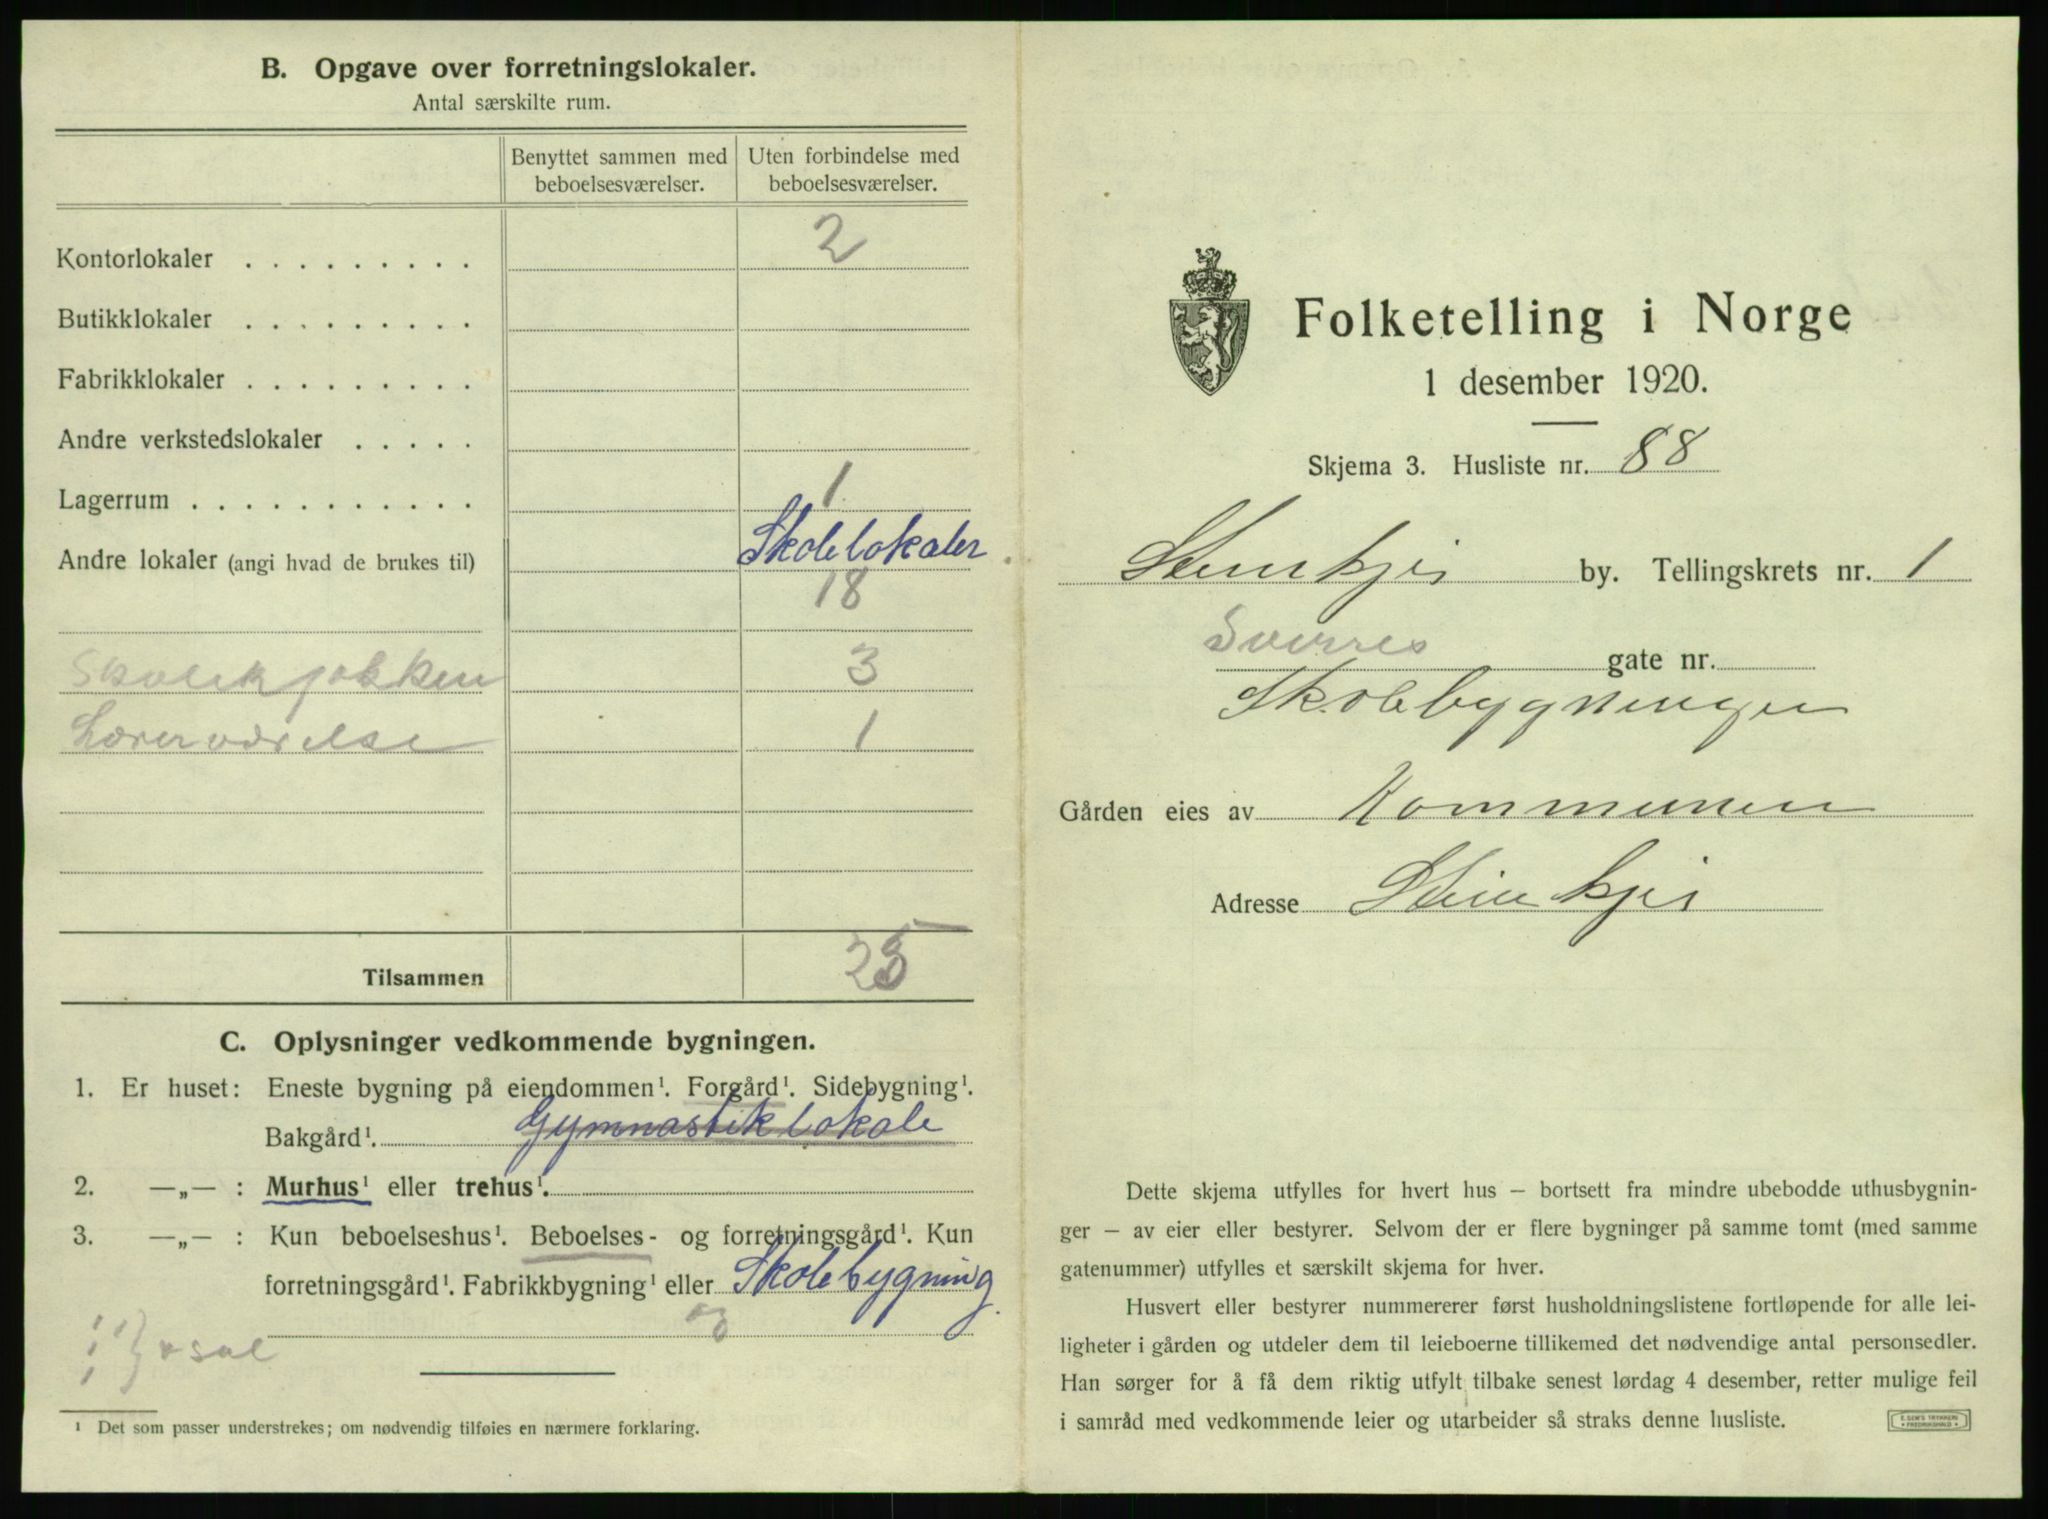 B. Opgave over forretningslokaler.
Antal særskilte rum.
Benyttet sammen med beboelsesværelser.
Uten forbindelse med beboelsesværelser.
Kontorlokaler . . . . . . . . . 2
Butikklokaler . . . . . . . . .
Fabrikklokaler . . . . . . . . .
Andre verkstedslokaler . . . . .
Lagerrum . . . . . . . . . . . 1
Andre lokaler (angi hvad de brukes til) Skolelokaler
18
Skolekjøkken 3
Lærerværelse 1
Tilsammen 25
C. Oplysninger vedkommende bygningen.
1. Er huset: Eneste bygning på eiendommen¹. Forgård¹. Sidebygning¹.
Bakgård¹. Gymnastiklokale
2. —„— : Murhus¹ eller trehus¹.
3. —„— : Kun beboelseshus¹. Beboelses- og forretningsgård¹. Kun
forretningsgård¹. Fabrikkbygning¹ eller Skolebygning
¹ Det som passer understrekes; om nødvendig tilføies en nærmere forklaring.
Folketelling i Norge
1 desember 1920.
Skjema 3. Husliste nr. 88
Stenkjer by. Tellingskrets nr. 1
Sverres gate nr.
Skolebygningen
Gården eies av Kommunen
Adresse Steinkjer
Dette skjema utfylles for hvert hus – bortsett fra mindre ubebodde uthusbygnin-
ger – av eier eller bestyrer. Selvom der er flere bygninger på samme tomt (med samme
gatenummer) utfylles et særskilt skjema for hver.
Husvert eller bestyrer nummererer først husholdningslistene fortløpende for alle lei-
ligheter i gården og utdeler dem til leieboerne tillikemed det nødvendige antal personsedler.
Han sørger for å få dem riktig utfylt tilbake senest lørdag 4 desember, retter mulige feil
i samråd med vedkommende leier og utarbeider så straks denne husliste.
E. SEM'S TRYKKERI
FREDRIKSHALD